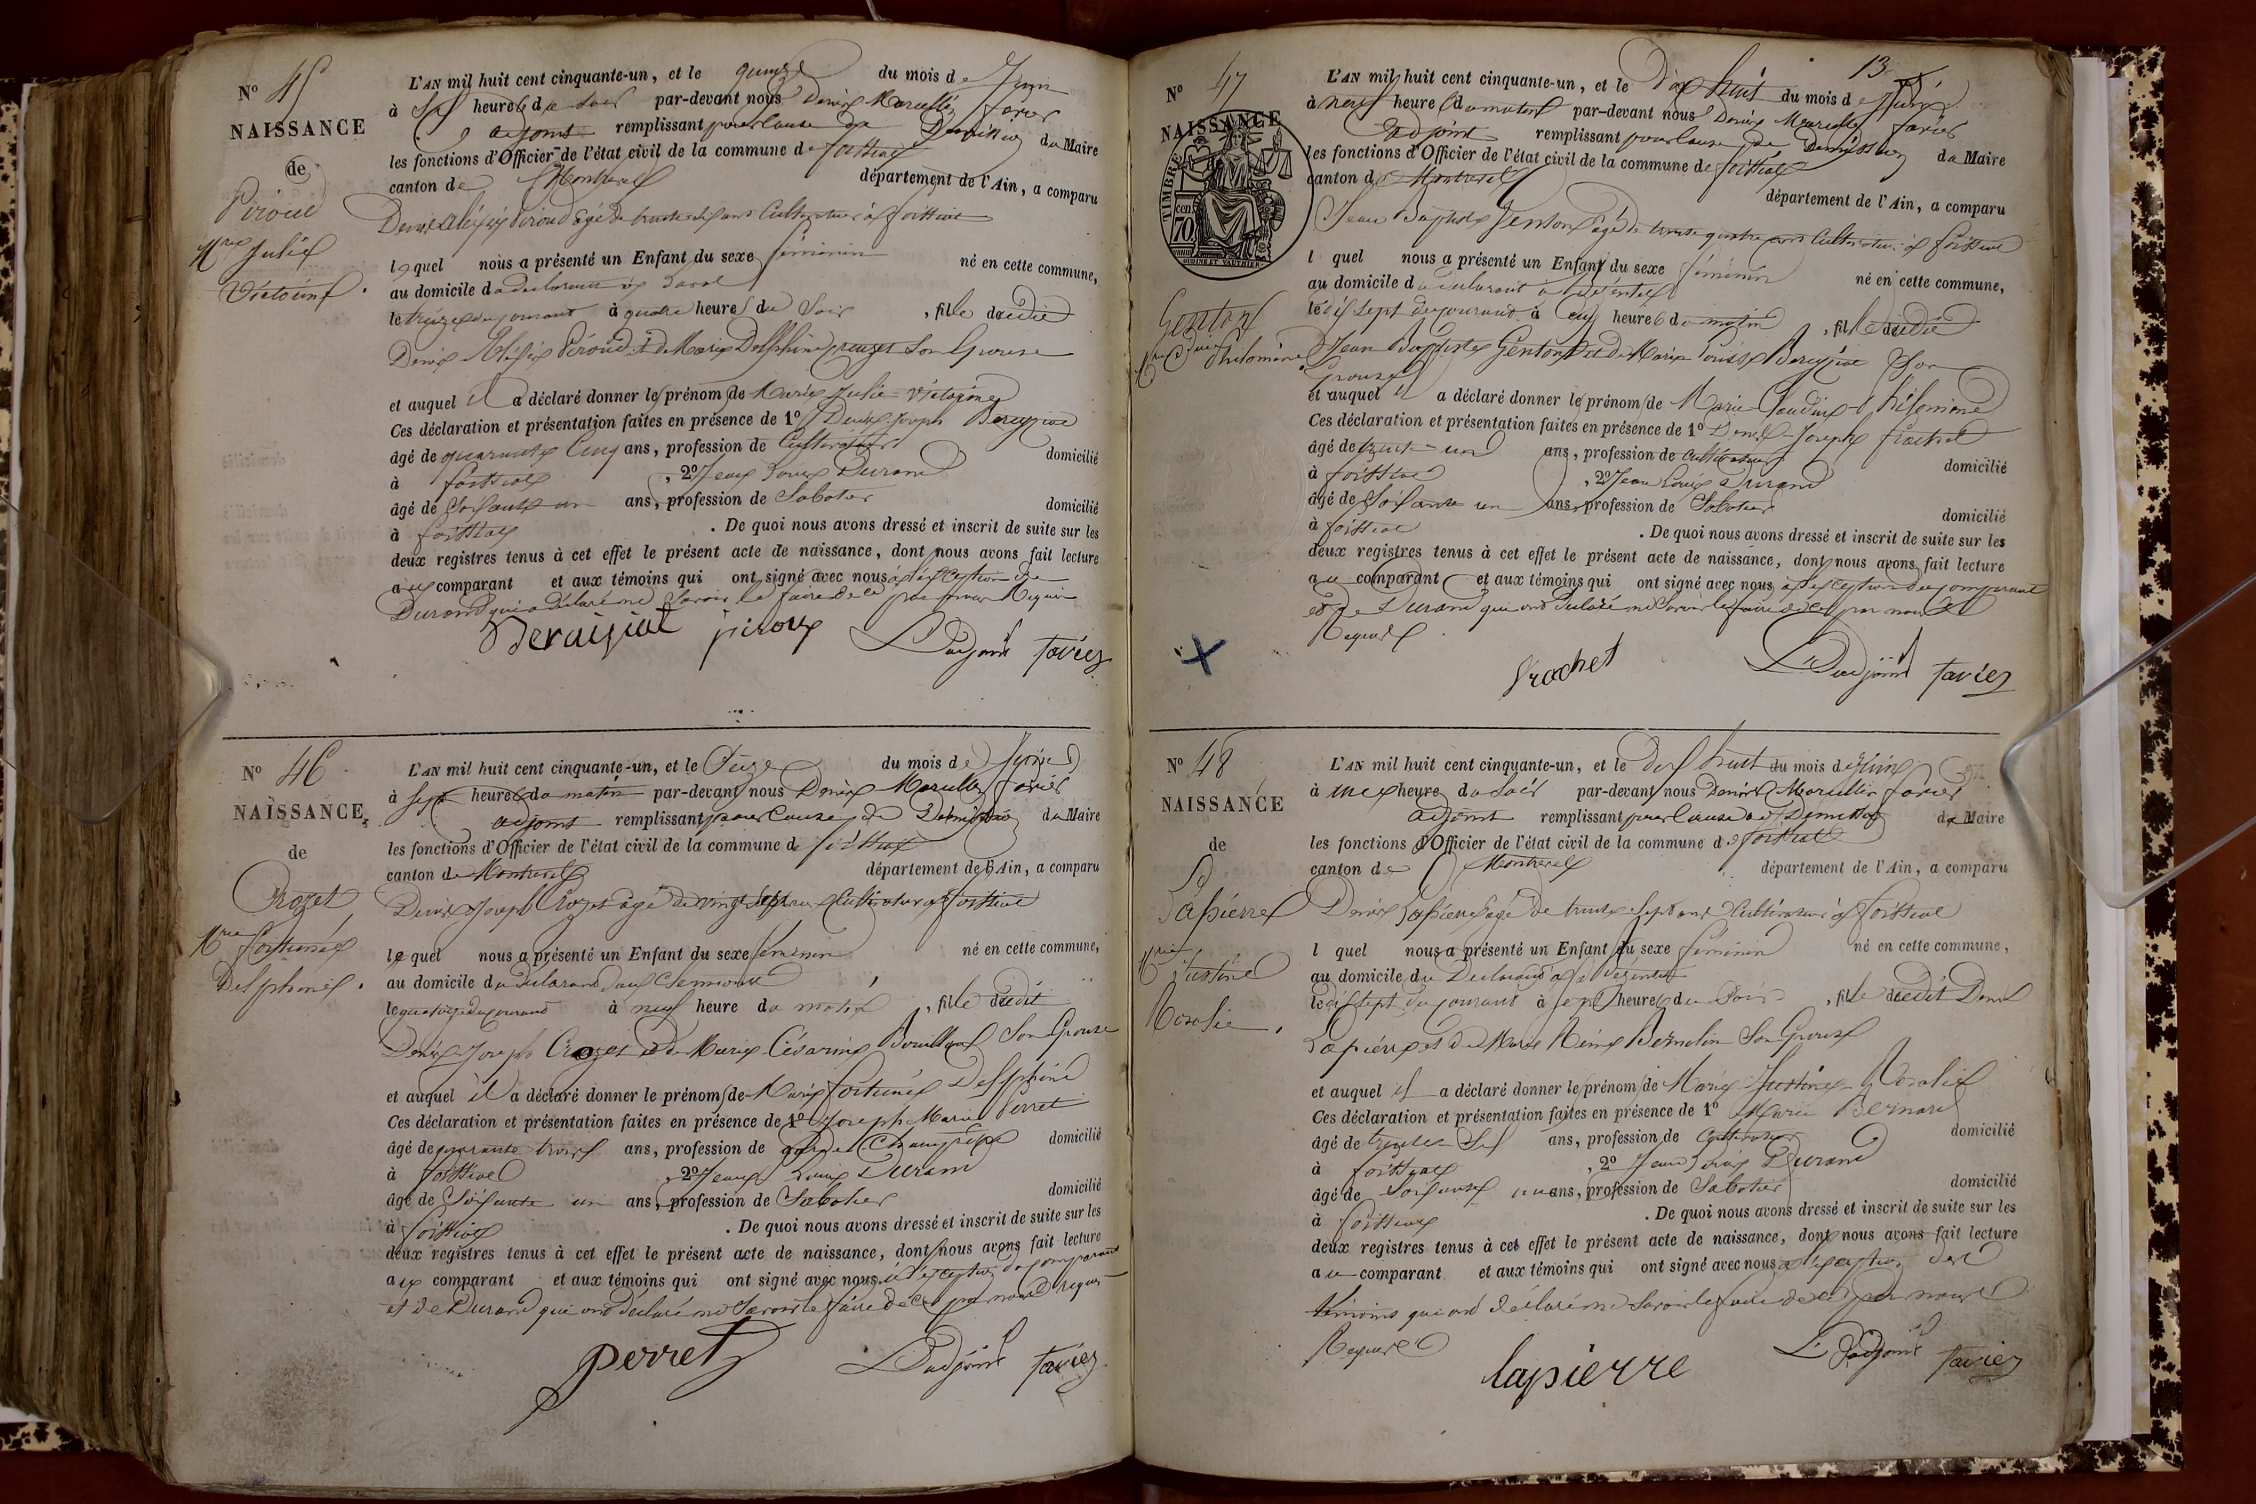 Nº 45
NAISSANCE
de
Piroud
Mrie Julie
L'AN mil huit cent cinquante-un, et le quinze du mois de Juin
à Six heures du soir par-devant nous Denis Marcellin favier
adjoint remplissant pour cause de Démission du Maire
les fonctions d'Officier de l'état civil de la commune de foissiat
canton de Montrevel département de l'Ain, a comparu
Denis Alexis Piroud âgé de trente six ans Cultivateur à foissiat
lequel nous a présenté un Enfant du sexe féminin né en cette commune,
au domicile du déclarant
le treize du courant à quatre heures du Soir, fille dudit
Denis Alexis Piroud et de Marie Delphine Son Epouse
et auquel il a déclaré donner les prénoms de Marie Julie
Ces déclaration et présentation faites en présence de 1º Denis Joseph
âgé de quarante Cinq ans, profession de Cultivateur domicilié
à foissiat, 2º Jean Louis Durand
âgé de Soixante un ans, profession de Sabotier domicilié
à foissiat. De quoi nous avons dressé et inscrit de suite sur les
deux registres tenus à cet effet le présent acte de naissance, dont nous avons fait lecture
au comparant et aux témoins qui ont signé avec nous à l'exception de
Durand qui a déclaré ne Savoir le faire de ce par nous Requis
piroux L'adjoint favier
Nº 46
NAISSANCE
de
Crozet
Mrie fortunée
Delphine.
L'AN mil huit cent cinquante-un, et le Seize du mois de Juin
à Sept heures du matin par-devant nous Denis Marcellin favier
adjoint remplissant pour Cause de Démission du Maire
les fonctions d'Officier de l'état civil de la commune de foissiat
canton de Montrevel département de l'Ain, a comparu
Denis Joseph Crozet âgé de vingt Sept ans Cultivateur à foissiat
lequel nous a présenté un Enfant du sexe féminin né en cette commune,
au domicile du déclarant
le quatorze du courant à neuf heure du matin, fille dudit
Denis Joseph Crozet et de Marie Césarine Son Epouse
et auquel il a déclaré donner le prénoms de Marie fortunée Delphine
Ces déclaration et présentation faites en présence de 1º Joseph Marie Perret
âgé de quarante trois ans, profession de garde Champêtre domicilié
à foissiat, 2º Jean Louis Durand
âgé de Soixante un ans, profession de Sabotier domicilié
à foissiat. De quoi nous avons dressé et inscrit de suite sur les
deux registres tenus à cet effet le présent acte de naissance, dont nous avons fait lecture
au comparant et aux témoins qui ont signé avec nous à l'exception du comparant
et de Durand qui ont déclaré ne Savoir le faire de ce par nous Requis
perret L'adjoint favier
13
Nº 47
NAISSANCE
TIMBRE
70
Genton
Philomène
L'AN mil huit cent cinquante-un, et le dix huit du mois de Juin
à neuf heures du matin par-devant nous Denis Marcellin favier
adjoint remplissant pour cause de Démission du Maire
les fonctions d'Officier de l'état civil de la commune de foissiat
canton de Montrevel département de l'Ain, a comparu
Jean Baptiste Genton âgé de trente quatre ans Cultivateur à foissiat
l quel nous a présenté un Enfant du sexe féminin né en cette commune,
au domicile du déclarant
le dix sept du courant à heures du matin, fille dudit
Jean Baptiste Genton et de Marie Louise Son
Epouse
et auquel il a déclaré donner les prénoms de Marie Claudine Philomène
Ces déclaration et présentation faites en présence de 1º Denis Joseph
âgé de trente un ans, profession de Cultivateur domicilié
à foissiat, 2º Jean Louis Durand
âgé de Soixante un ans, profession de Sabotier domicilié
à foissiat. De quoi nous avons dressé et inscrit de suite sur les
deux registres tenus à cet effet le présent acte de naissance, dont nous avons fait lecture
au comparant et aux témoins qui ont signé avec nous à l'exception du comparant
et de Durand qui ont déclaré ne Savoir le faire de ce par nous
Requis
L'adjoint favier
Nº 48
NAISSANCE
de
Lapierre
Mrie
Justine
Rosalie.
L'AN mil huit cent cinquante-un, et le dix huit du mois de Juin
à une heure du soir par-devant nous Denis Marcellin favier
adjoint remplissant pour cause de Démission du Maire
les fonctions d'Officier de l'état civil de la commune de foissiat
canton de Montrevel département de l'Ain, a comparu
Denis Lapierre âgé de trente Sept ans Cultivateur à foissiat
l quel nous a présenté un Enfant du sexe féminin né en cette commune,
au domicile du Déclarant
le dix sept du courant à sept heures du Soir, fille dudit Denis
Lapierre et de Marie Reine Son Epouse
et auquel il a déclaré donner les prénoms de Marie Justine Rosalie
Ces déclaration et présentation faites en présence de 1º Marie Bernard
âgé de trente Six ans, profession de Cultivateur domicilié
à foissiat, 2º Jean Louis Durand
âgé de Soixante un ans, profession de Sabotier domicilié
à foissiat. De quoi nous avons dressé et inscrit de suite sur les
deux registres tenus à cet effet le présent acte de naissance, dont nous avons fait lecture
au comparant et aux témoins qui ont signé avec nous à l'exception des
témoins qui ont déclaré ne Savoir le faire de ce par nous
Requis
lapierre L'adjoint favier